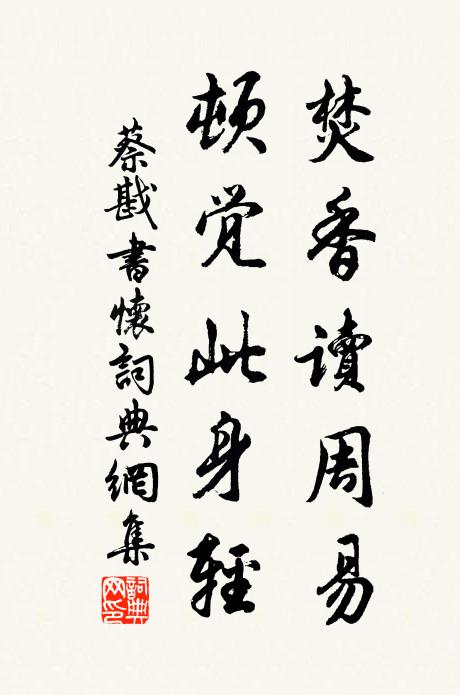 焚香讀周易
頓觉此身輕
蔡戡書懷詞典網集
詞典网印